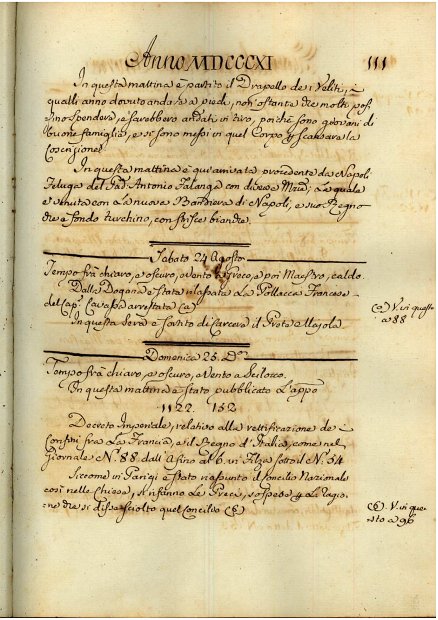 Anno MDCCCXI 111
In questa mattina è partito il Drapello de i Veliti, i
quali anno dovuto andare a piedi, non ostante che molti pos-
sino spendere, e sarebbero andati in tiro, poiché sono giovani di
buone famiglie, e si sono messi in quel Corpo p scansare la
Coscrizione
In questa mattina è qui arrivata procedente da Napoli
Feluga del Pad. Antonio Talanga con diversa Mria; La quale
è venuta con La nuova Bandiera di Napoli, e suo Regno
che è fondo turchino, con strisce bianche.
Sabato 24 Agosto
Tempo frà chiaro, e oscuro, vento a Greco, e poi Maestro, caldo
Dalla Dogana è stata rilasciata La Pollacca Francese
del Cap. Cavassa arrestata (a)
(a) V. in questo
a 88
In questa Sera è sortito di Carcere il Prete Majola
Domenica 25. Do
Tempo frà chiaro, e oscuro, e vento a Scilocco.
In questa mattina è stato pubblicato L'appo
1122. 152
Decreto Imperiale, relativo alla rettificazione de i
Confini frà La Francia, e il Regno d'Italia, come nel
Giornale N. 88. dall A fino al 6 in Filza sotto il N. 54
Siccome in Parigi è stato riassunto il Concilio Nazionale
così nelle Chiese, si rifanno Le Preci, sospese p La ragio-
ne che si disse sciolto quel Concilio (b)
(b). V. in que-
sto a 96